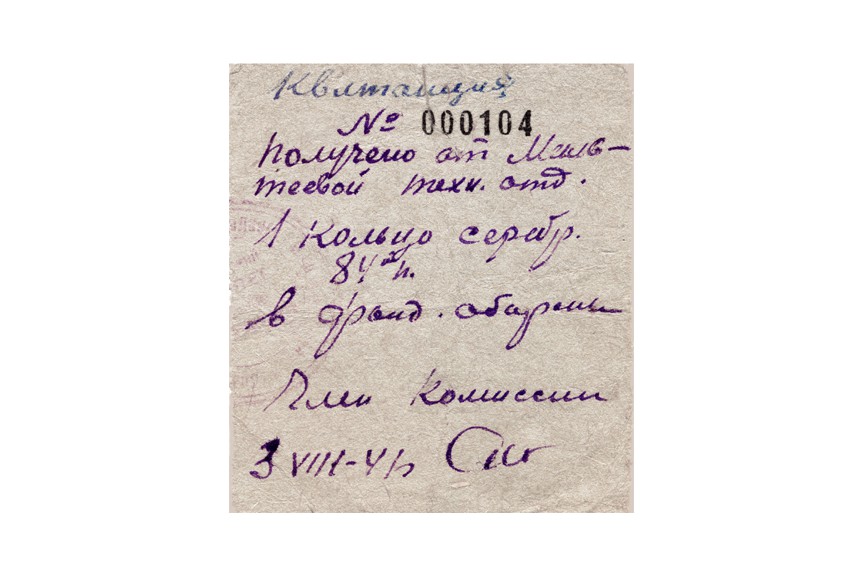 Квитанция
№ 000104
Получено от Маль-
теевой техн. отд.
1 кольцо серебр.
84х п.
в фонд. обороны
Член Комиссии
3 VIII-41